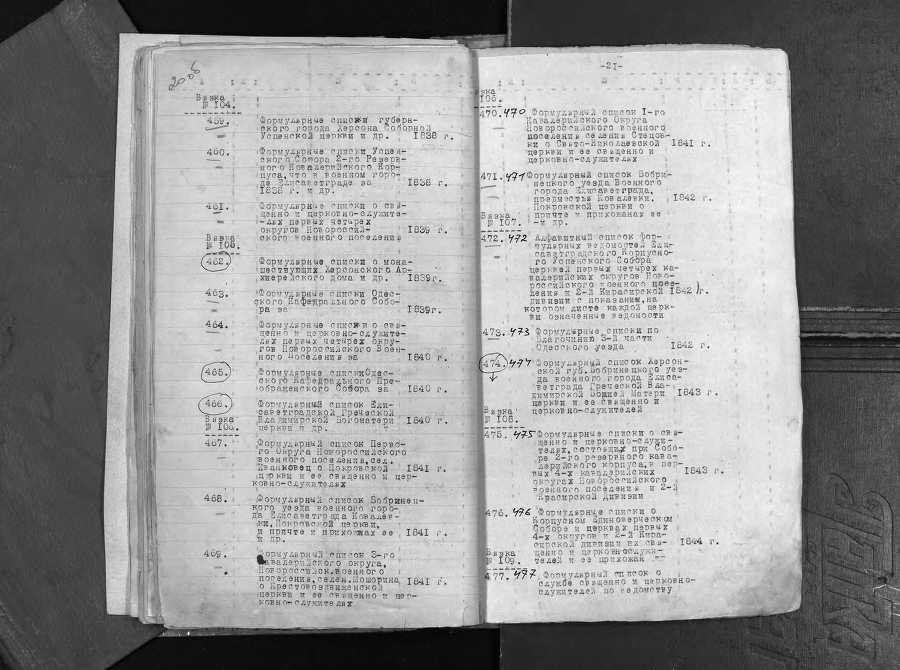 2006
Вязка
№ 104.
459. Формулярные списки губерн-
ского города Херсона Соборной
Успенской церкви и др. 1838 г.
460. Формулярные списки Успен-
ского Собора 2-го Резерв-
ного Кавалерийского Кор-
пуса, что в военном горо-
де Елисаветграде за 1838 г.
1838 г. и др.
461. Формулярные списки о свя-
щенно и церковно-служите-
-лях первых четырех
округов Новороссий- 1839 г.
ского военного поселения
Вязка
№ 105.
462. Формулярные списки о мона-
шествующих Херсонского Ар-
хиерейского дома и др. 1839г.
463. Формулярные списки Одес-
ского Кафедрального Собо-
ра за 1839г.
464. Формулярные списки о свя-
щенно и церковно-служите-
лях первых четырех окру-
гов Новороссийского Воен-
ного Поселения за 1840 г.
465. Формулярные спискиОдес-
ского Кафедрального Пре-
ображенского Собора за 1840 г.
466. Формулярный список Ели-
саветградской Греческой
Владимирской Богоматери 1840 г.
церкви и др.
Вязка
467. Формулярный список Перво-
го Округа Новороссийского
военного поселения, сел.
Иванковец о Покровской 1841 г.
церкви и ее священно и цер-
ковно-служителях
468. Формулярный список Бобринец-
кого уезда военного горо-
да Елисаветграда Ковалев-
ки, Покровской церкви,
и причте и прихожанах ее 1841 г.
и др.
469. Формулярный список 3-го
Кавалерийского округа,
Новороссийск.военного
поселения, селен. Пошорина, 1841 г.
о Крестовоздвиженской
церкви и ее священно и цер-
ковно-служителях
-21-
вязка
106.
470. 470 Формулярный список I-го
Кавалерийского Округа
Новороссийского военного
поселения селения Стецов-
ки о Свято-Николаевской 1841 г.
церкви и ее священно и
церковно-служителях
471. 471 Формулярный список Бобри-
нецкого уезда Военного
города Елисаветграда,
предместья Ковалевки, 1842 г.
Покровской церкви о
причте и прихожанах ее
-и др.
Вязка
№ 107.
472. 472 Алфавитный список фор-
мулярных ведомостей Ели-
саветградского Корпусно-
го Успенского Собора
церквей первых четырех ка-
валерийских округов Ново-
российского военного посе-
ления и 2-й Кирасирской 1842 г.
дивизии с показанием, на
котором листе каждой церк-
ви означенные ведомости
473. 473 Формулярные списки по
Благочинию 3-й части
Одесского уезда 1842 г.
474. 474 Формулярный список Херсон-
ской губ. Бобринецкого уез-
да военного города Елиса-
ветграда Греческой Вла-
димирской Божией Матери 1843 г.
церкви и ее священно и
церковно-служителей
Вязка
№ 108.
475. 475 Формулярные списки о свя-
щенно и церковно-служи-
телях, состоящих при Собо-
ре 2-го резервного кава-
лерийского корпуса, в пер-
вых 4-х кавалерийских 1843 г.
округах Новороссийского
военного поселения и 2-й
Красирской Дивизии
476. 476 Формулярные списки о
Корпусном единоверческом
Соборе и церквах первых
4-х округов и 2-й Кира-
сирской дивизии их свя- 1844 г.
щенно и церковнослужи-
телей и ее прихожан
Вязка
№ 109.
477. 477 Формулярный список о
службе священно и церковно-
служителей по ведомству